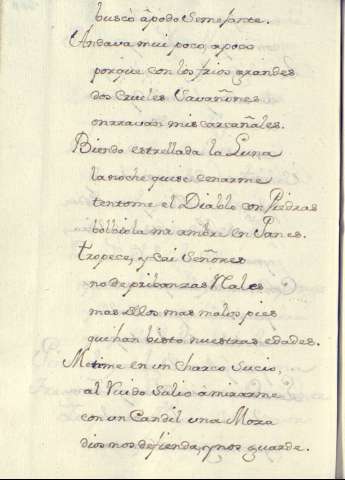 buscò apodo Semejante.
Andava mui poco, a poco
porque con los frios grandes
dos crueles Savañones
onrravan mis carcañales.
Biendo estrellada la Luna
la noche quise cenarme
tentome el Diablo con Piedras
bolbiola mi ambre en Panes.
tropece, y cai Señores
no de pribanzas Reales
mas dellos mas malos pies
qui han bisto nuestras edades.
Metime en un charco sucio,
al Ruido Salio a mirarme
con un Candil una Moza
dios nos defienda, y nos guarde.